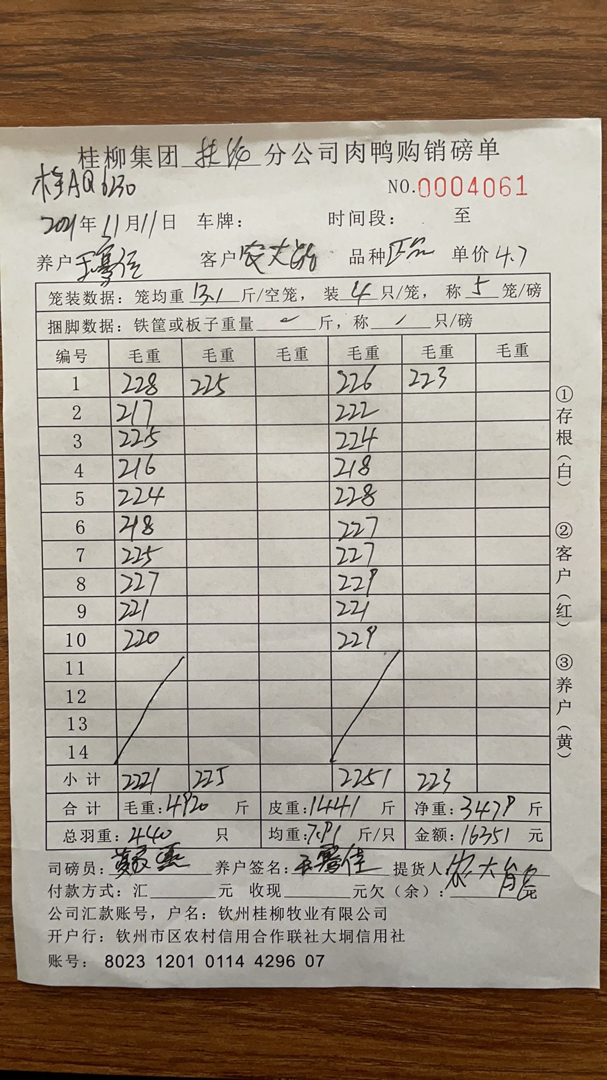 桂柳集团 分公司肉鸭购销磅单
桂AQ6230 NO.0004061
2021年11月11日 车牌： 时间段： 至
养户 客户 品种 单价4.7
笼装数据：笼均重13.1斤/空笼，装4只/笼，称5笼/磅
捆脚数据：铁筐或板子重量 斤，称 只/磅
编号 毛重 毛重 毛重 毛重 毛重 毛重
1 228 225 226 223
2 217 222
3 225 224
4 216 218
5 224 228
6 218 227
7 225 227
8 227 229
9 221 221
10 220 229
11
12
13
14
小计 2221 225 2251 223
合计 毛重：4920斤 皮重：1441斤 净重：3479斤
总羽重：440只 均重：7.91斤/只 金额：16351元
司磅员： 养户签名： 提货人
付款方式：汇 元 收现 元欠（余）： 元
公司汇款账号，户名：钦州桂柳牧业有限公司
开户行：钦州市区农村信用合作联社大垌信用社
账号：8023 1201 0114 4296 07
①存根（白）
②客户（红）
③养户（黄）